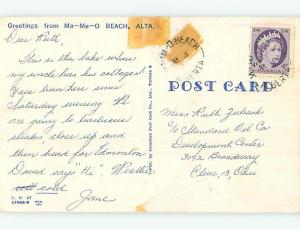 Greetings from Ma-Me-O BEACH, ALTA.
Dear Ruth,
This is the lake where
my uncle has his cottage.
Have been here since
Saturday evening. We
are going to barbecue
steaks, close up and
then head for Edmonton
David says "Hi". Weather
cold.
Jane
POST CARD
Miss Ruth
c/o Standard Oil Co
Development Center
3092 Broadway
Cleve. 13, Ohio
CANADA